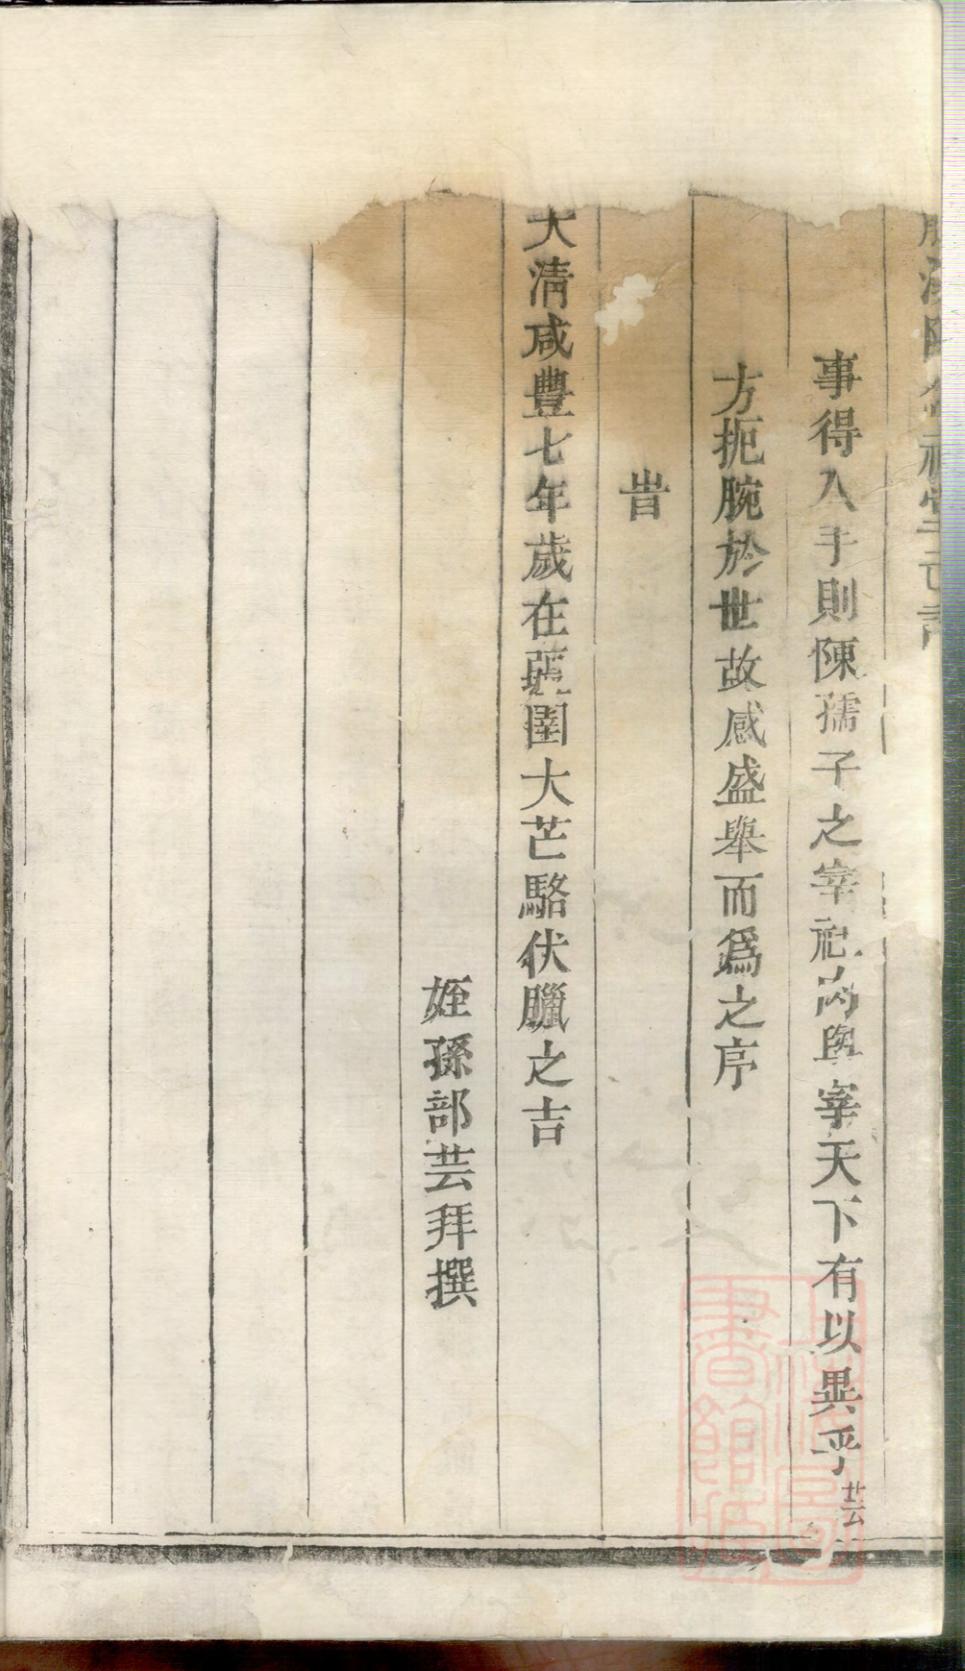 事得入手則陳孺子之宰社肉與宰天下有以異乎芸
方扼腕於世故感盛舉而爲之序
旹
大清咸豐七年歲在彊圉大芒駱伏臘之吉
姪孫部芸拜撰
上海圖書館藏